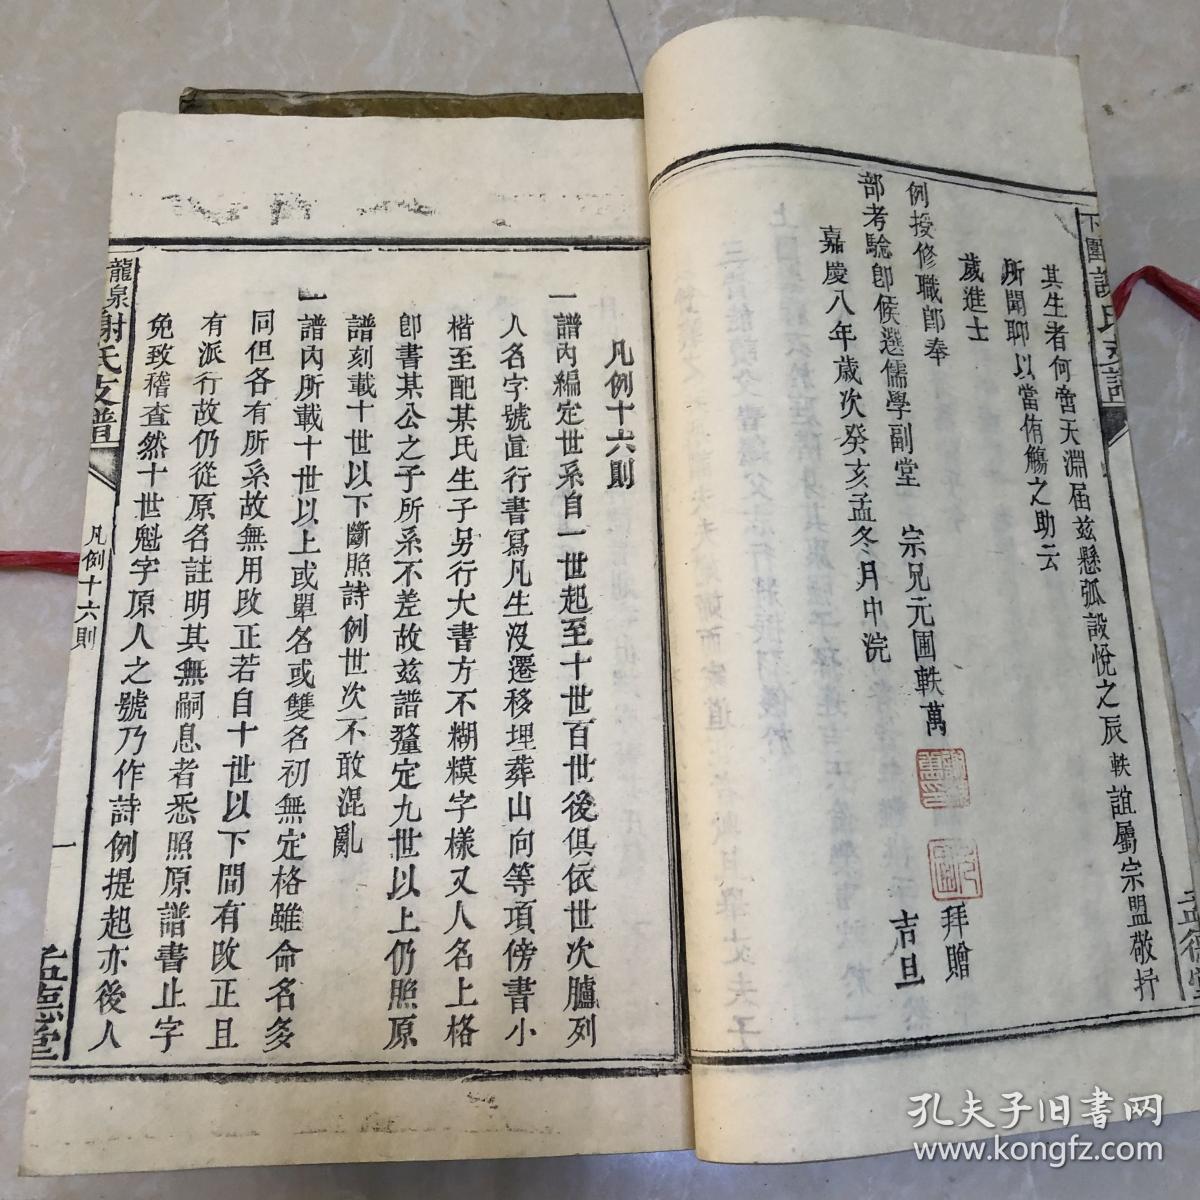 其生者何啻天淵届兹懸弧設帨之辰軼誼屬宗盟敬抒
所聞聊以當侑觴之助云
歲進士
例授修職郎奉
部考驗卽候選儒學副堂 宗兄元圃軼萬 拜贈
嘉慶八年歲次癸亥孟冬月中浣 吉旦
凡例十六則
一譜內編定世系自一世起至十世百世後俱依世次臚列
人名字號眞行書寫凡生沒遷移埋葬山向等項傍書小
楷至配某氏生子另行大書方不糊糢字樣又人名上格
卽書某公之子所系不差故兹譜釐定九世以上仍照原
譜刻載十世以下斷照詩例世次不敢混亂
一譜內所載十世以上或單名或雙名初無定格雖命名多
同但各有所系故無用改正若自十世以下間有改正且
有派行故仍從原名註明其無嗣息者悉照原譜書止字
免致稽查然十世魁字原人之號乃作詩例提起亦後人
龍泉謝氏支譜
凡例十六則
一
孟德堂
孔夫子旧书网
www.kongfz.com